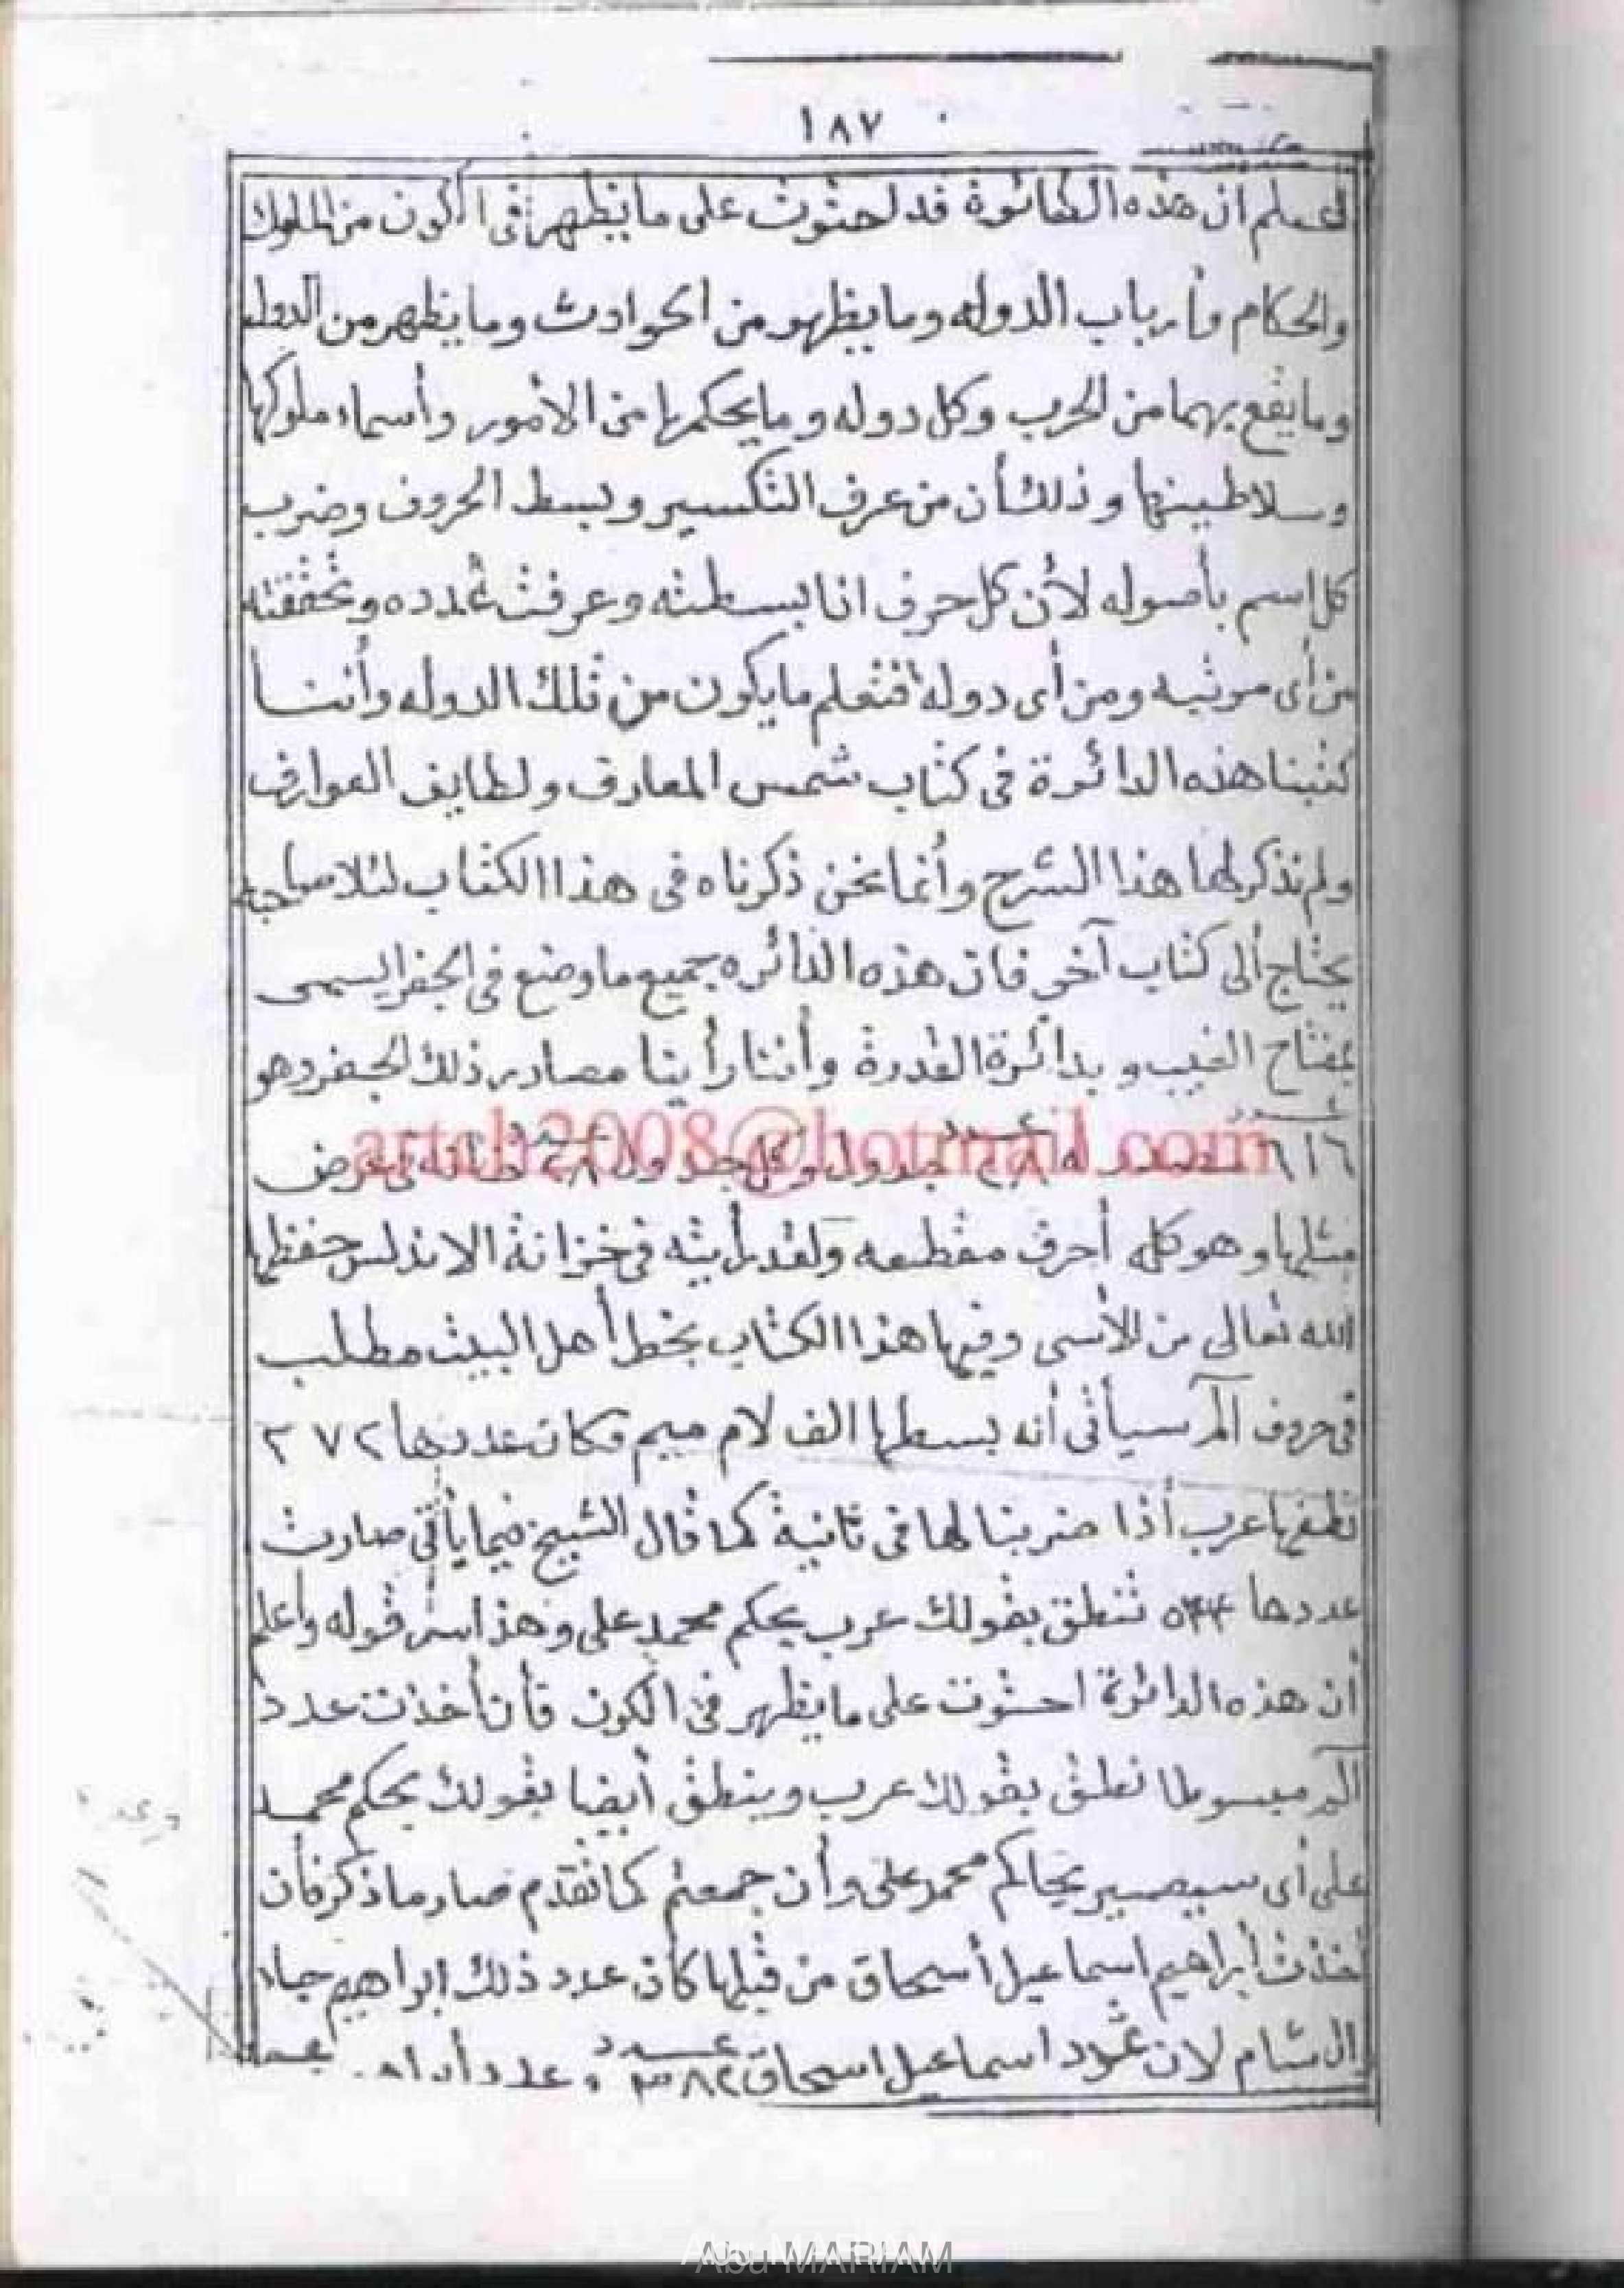 ١٨٧
اعلم ان هذه الدائرة قد احتوت على ما يظهر فى الكون من الملوك
والحكام وأرباب الدوله وما يظهر من الحوادث وما يظهر من الدوله
وما يقع بهما من الحرب وكل دوله وما يحكمها من الأمور وأسماء ملوكها
وسلاطينها وذلك أن من عرف التكسير وبسط الحروف وضرب
كل اسم بأصوله لأن كل حرف اذا بسطته وعرفت عدده وتحققته
من أى مرتبه ومن أى دوله فتعلم ما يكون من تلك الدوله وأننا
كتبنا هذه الدائرة فى كتاب شمس المعارف ولطايف العوارف
ولم نذكر لها هذا الشرح وأنما نحن ذكرناه فى هذا الكتاب لئلا صاحبه
يحتاج ألى كتاب آخر فان هذه الدائره جميع ما وضع فى الجفر
بمفتاح الغيب وبدائرة القدرة وأننا رأينا مصادر ذلك الجفر وهو
artch2008@hotmail.com
جدول وكل جدول ٢٨
مثلها وهو كله أحرف مقطعه ولقد رأيته فى خزانة الاندلس حفظها
الله تعالى من الأسى وفيها هذا الكتاب بخط أهل البيت مطلب
فى حروف آلم سيأتى أنه بسطها الف لام ميم فكان عددها ٢٧٢
نطقها عرب أذا ضربنا لها فى ثانية كما قال الشيخ فيما يأتى صارت
عددها ٥٤٤ تنطق بقولك عرب يحكم محمد على وهذا سر قوله واعلم
أن هذه الدائرة احتوت على ما يظهر فى الكون فأن أخذت عدد
آلم مبسوطا نطق بقولك عرب وينطق أيضا بقولك يحكم محمد
على أى سيصير يحاكم محمد على وأن جمعتم كما تقدم صار ما ذكر فأن
أخذت أبراهيم اسماعيل أسحاق من قبلها كان عدد ذلك ابراهيم جاء
الشام لان عدد اسماعيل اسحاق عدد ٣٨٢
Abu MARIAM